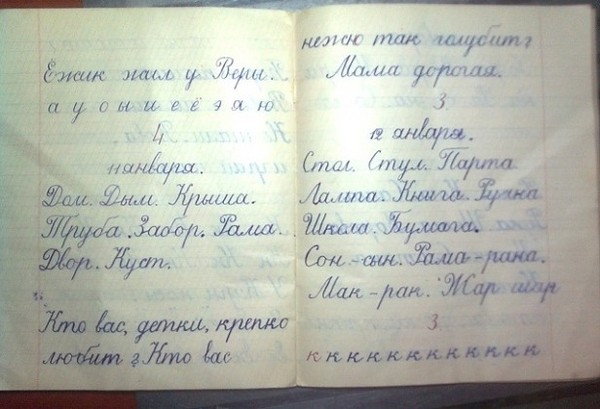 Ёжик жил у Веры.
а у о ы и е ё э я ю
4
января.
Дом. Дым. Крыша.
Труба. Забор. Рама.
Двор. Куст.
Кто вас, детки, крепко
любит? Кто вас
нежно так голубит?
Мама дорогая.
3
12 января.
Стол. Стул. Парта
Лампа. Книга. Ручка
Школа. Бумага.
Сон-сын. Рама-рана.
Мак-рак. Жар шар
3
к к к к к к к к к к к к